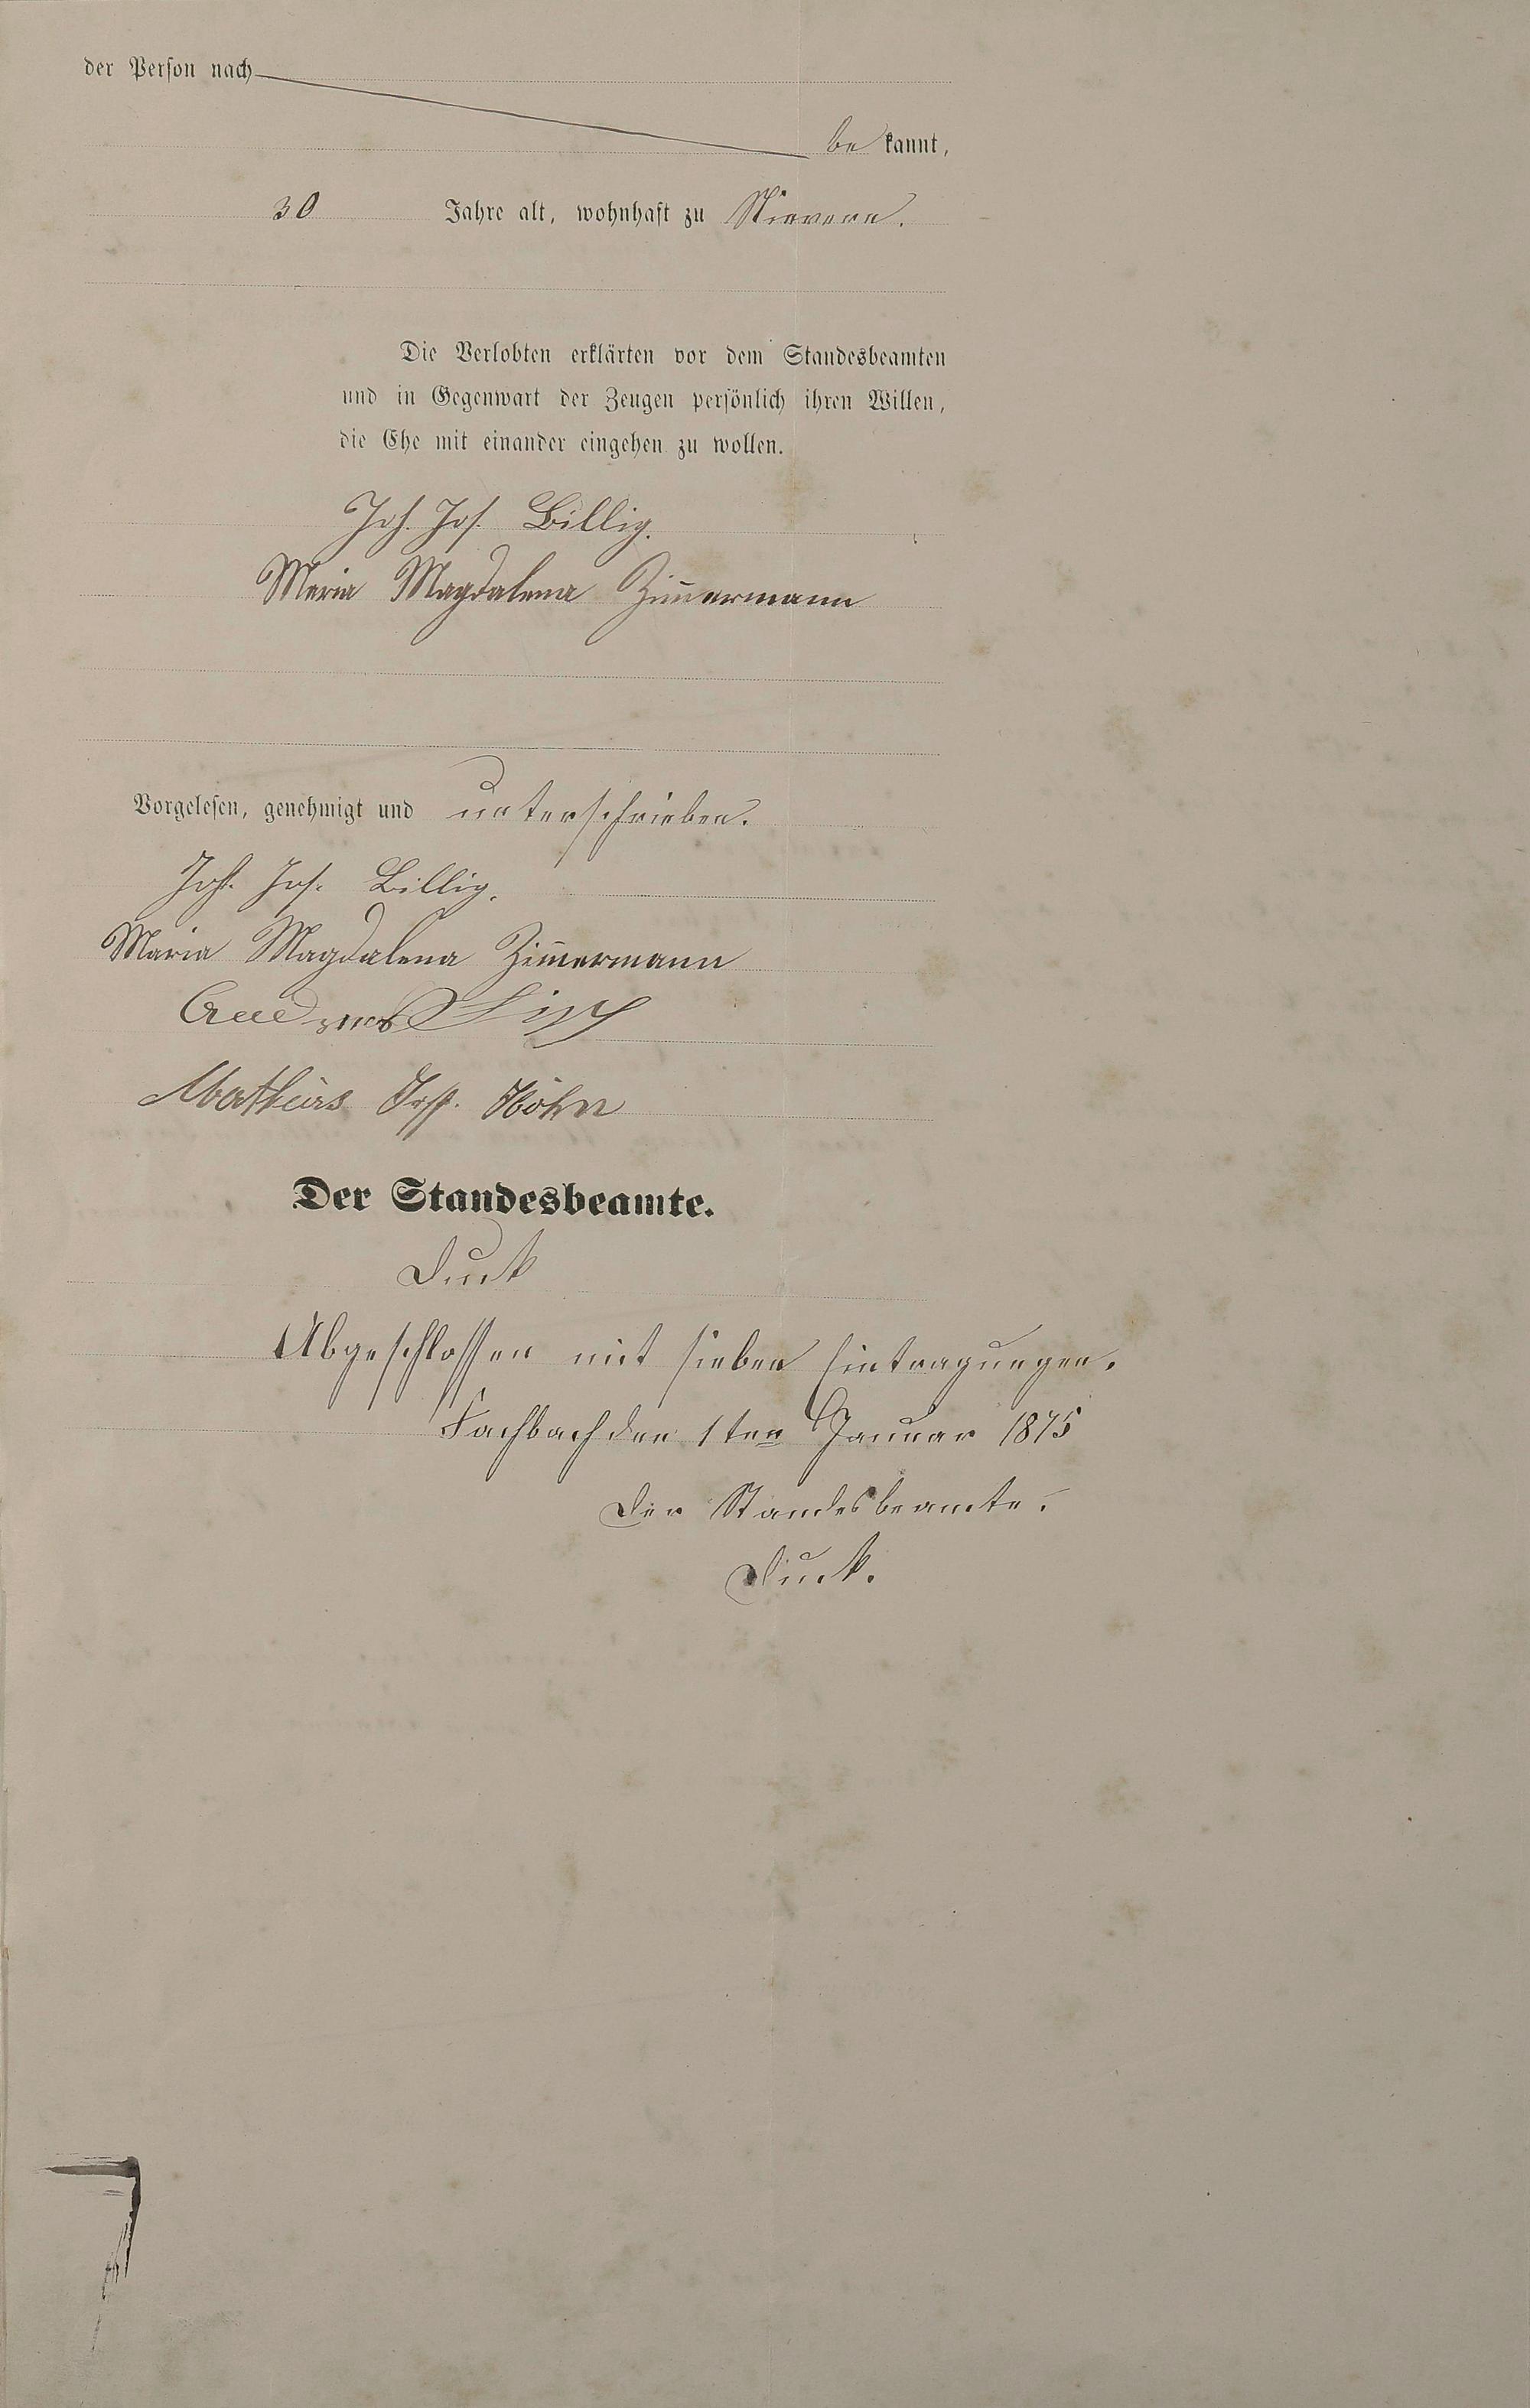 der Person nach
be kannt,
30 Jahre alt, wohnhaft zu Nievern.
Die Verlobten erklärten vor dem Standesbeamten
und in Gegenwart der Zeugen persönlich ihren Willen,
die Ehe mit einander eingehen zu wollen.
Joh. Jos. Billig.
Maria Magdalena Zim̄ermann
Vorgelesen, genehmigt und unterschrieben.
Joh. Jos. Billig.
Maria Magdalena Zim̄ermann
Andreas
Mathias Höhn
Der Standesbeamte.
Abgeschlossen mit sieben Eintragungen.
Fachbach den 1ten Januar 1875
Der Standesbeamte.